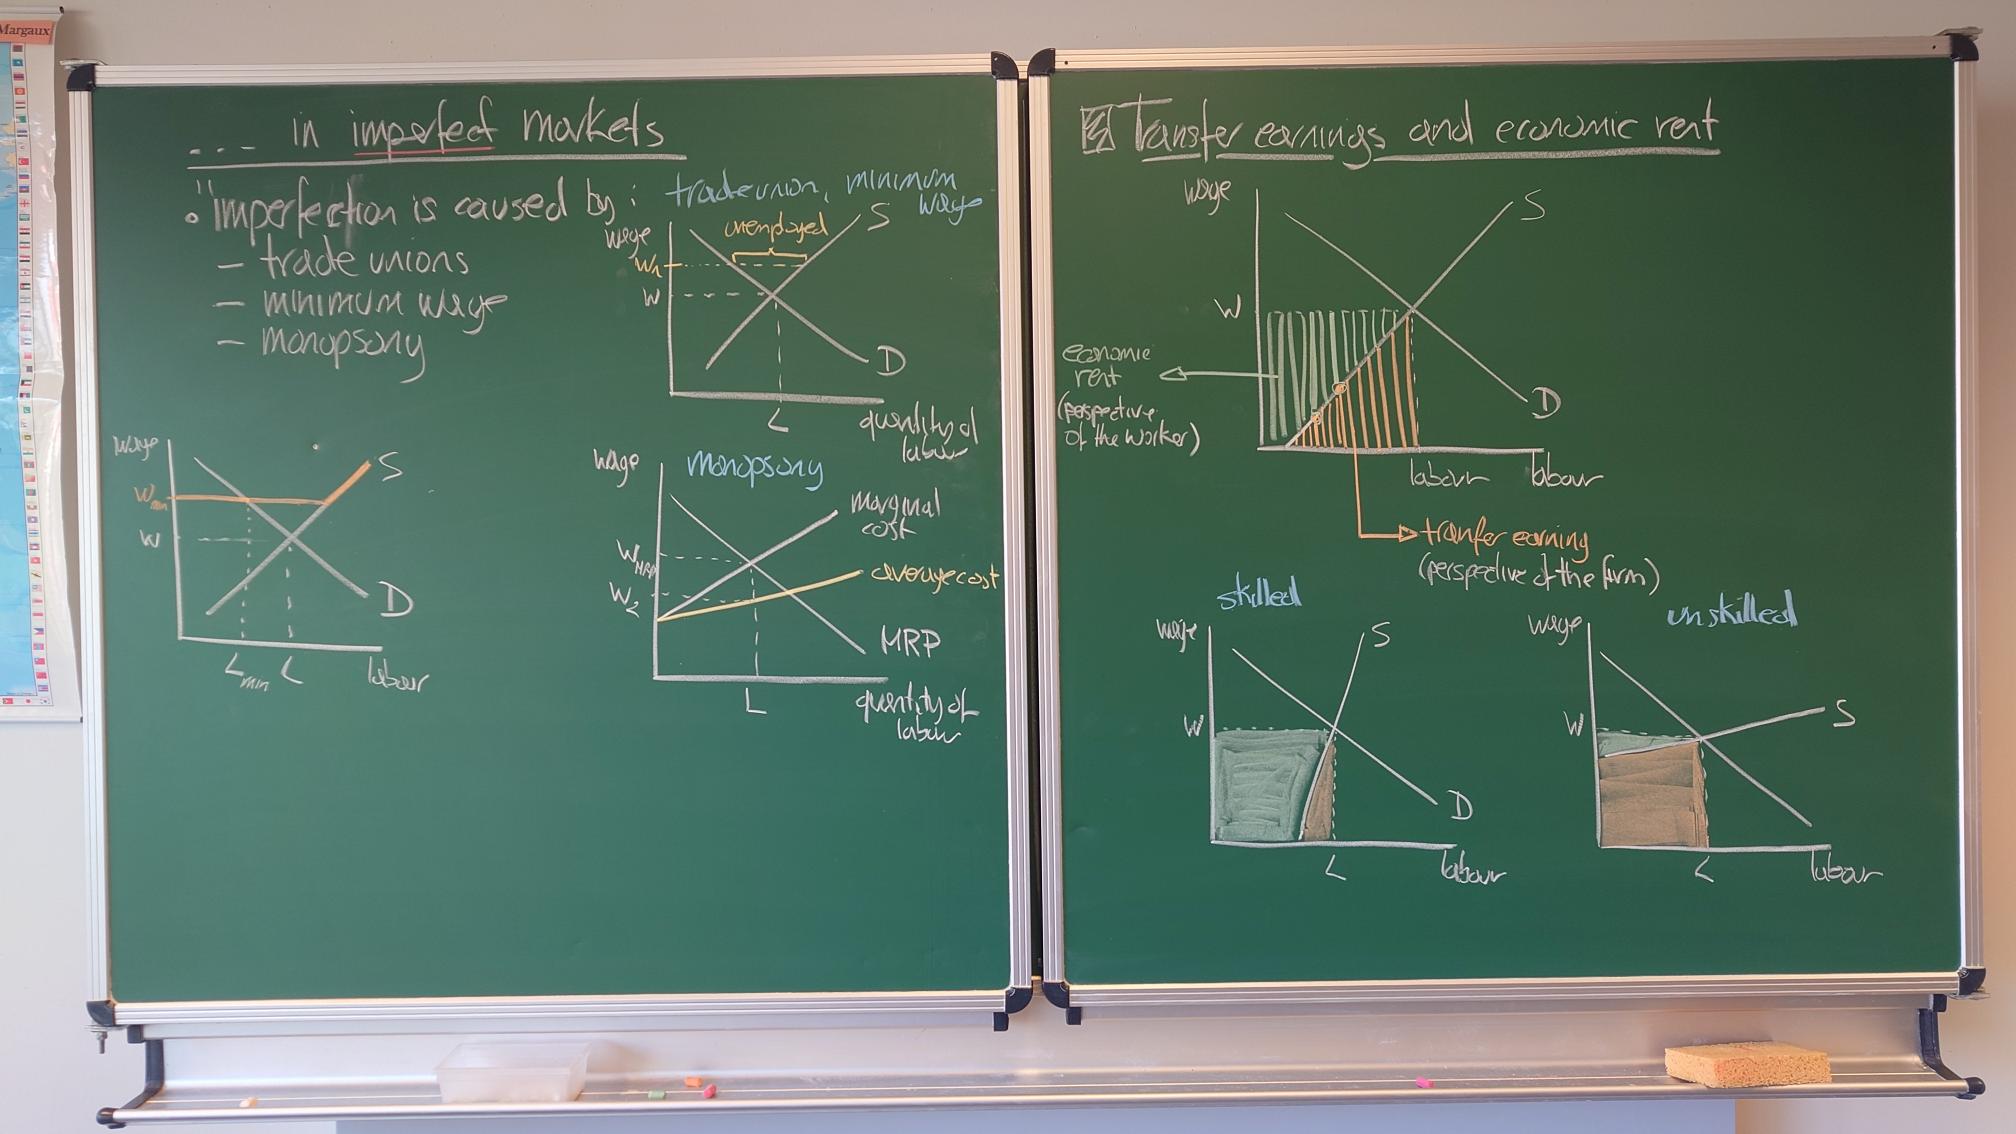 Margaux
... in imperfect markets
"Imperfection is caused by:
– trade unions
– minimum wage
– monopsony
trade union, minimum
wage
wage
unemployed
S
W1
W
D
L
quantity of
labour
wage
S
Wmin
W
D
Lmin L
labour
wage
monopsony
marginal
cost
WMRP
average cost
W2
MRP
L
quantity of
labour
Transfer earnings and economic rent
wage
S
W
economic
rent
(perspective
of the worker)
D
labour labour
tranfer earning
(perspective of the firm)
skilled
wage
S
W
D
L
labour
unskilled
wage
W
S
L
labour